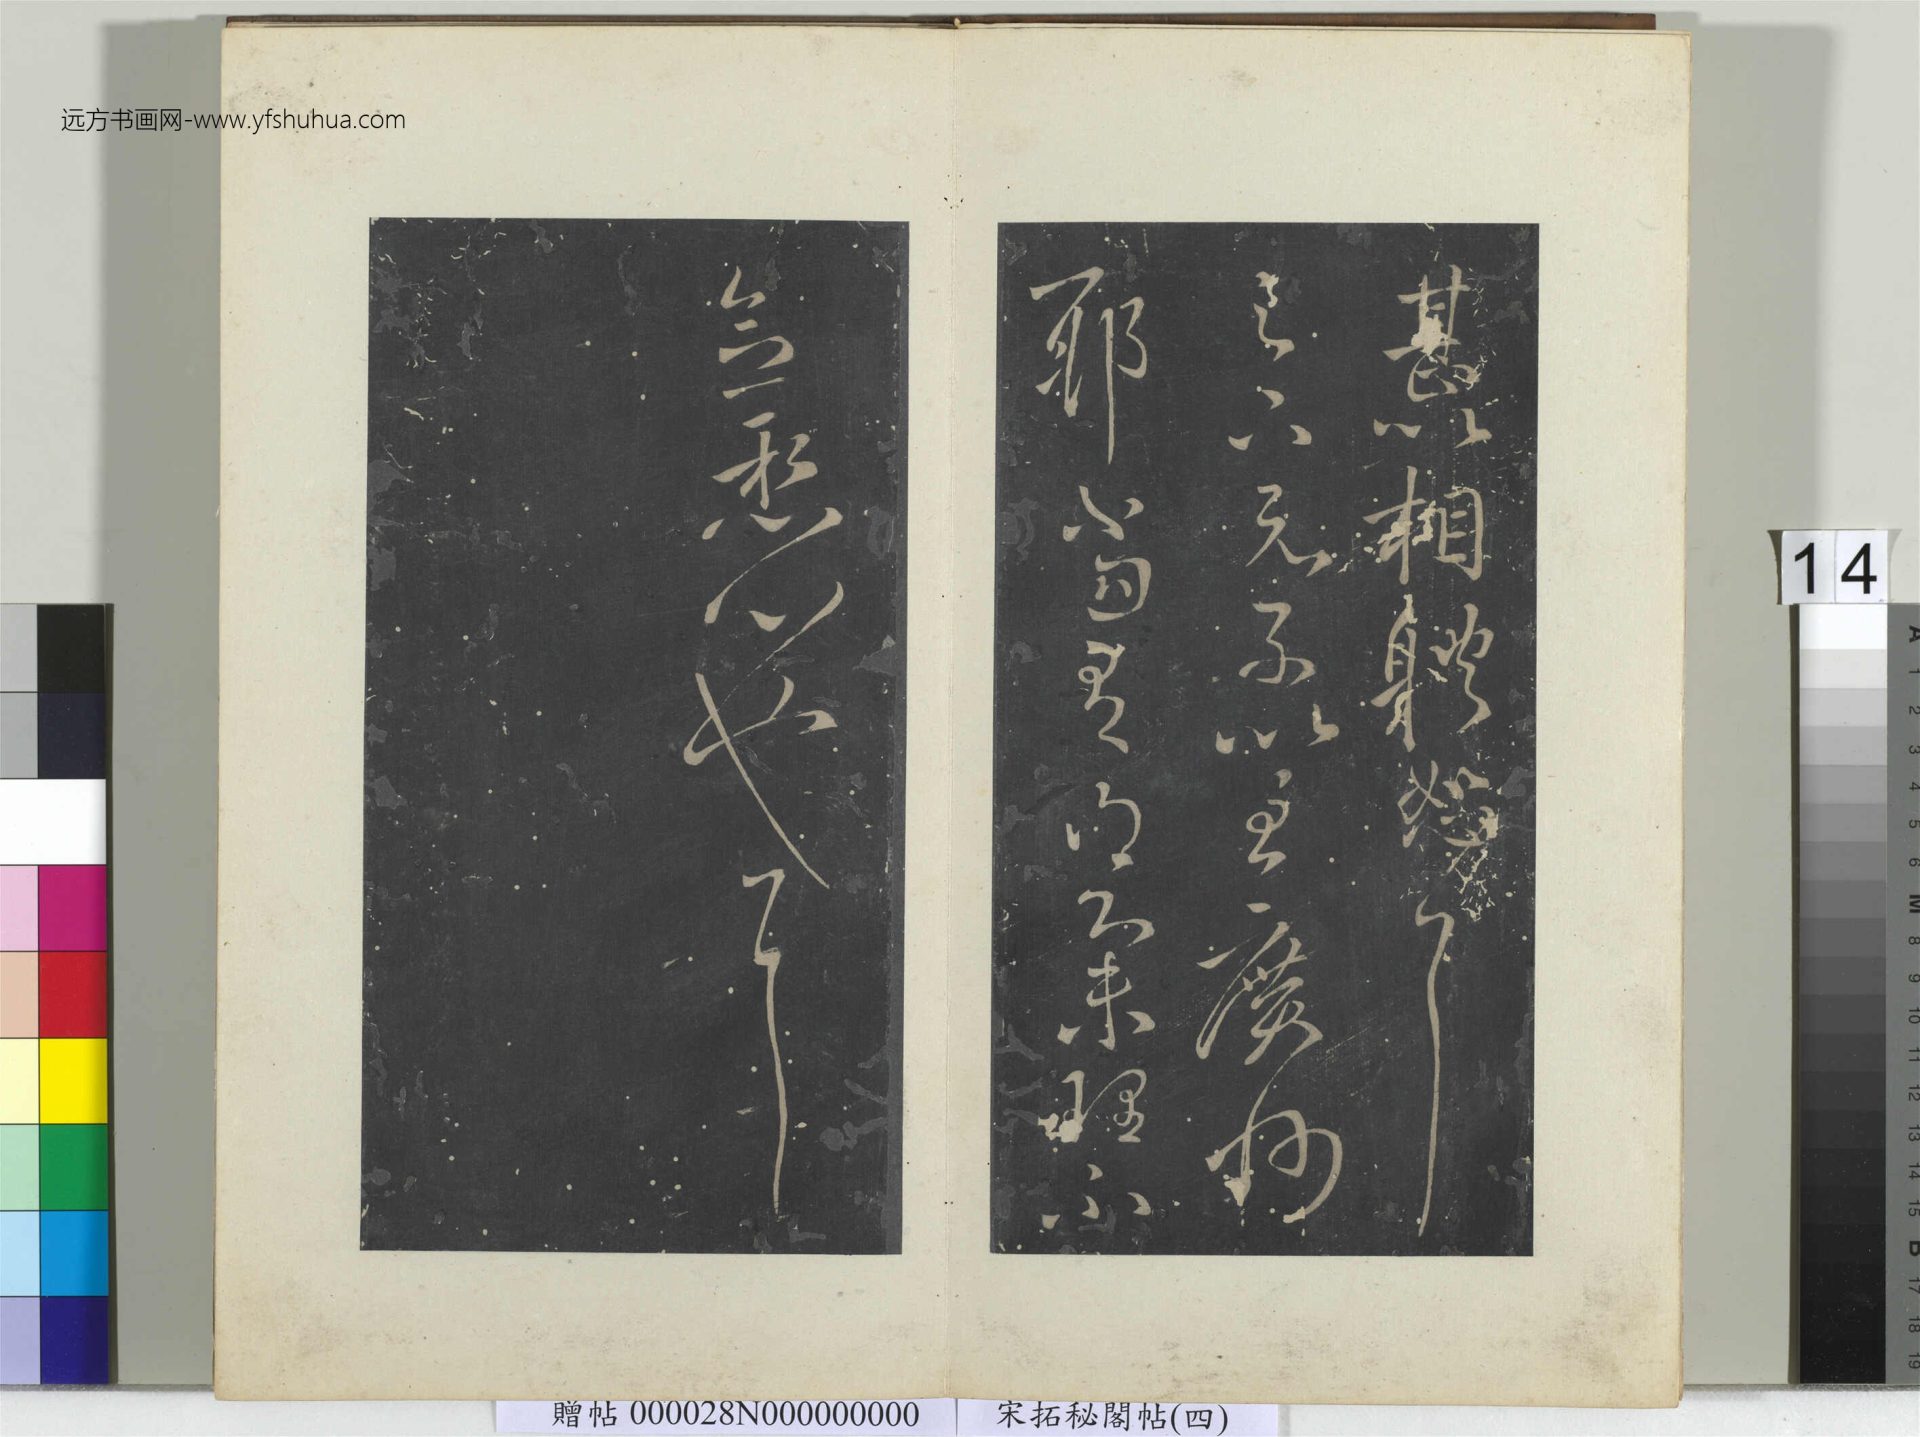 远方书画网-www.yfshuhua.com
甚以相體恕耳
足下兄子以至廣州
耶
當有
理不
令
悉心也
14
A 1 2 3 4 5 6 M 8 9 10 11 12 13 14 15 B 17 18 19
贈帖 000028N000000000
宋拓秘閣帖(四)